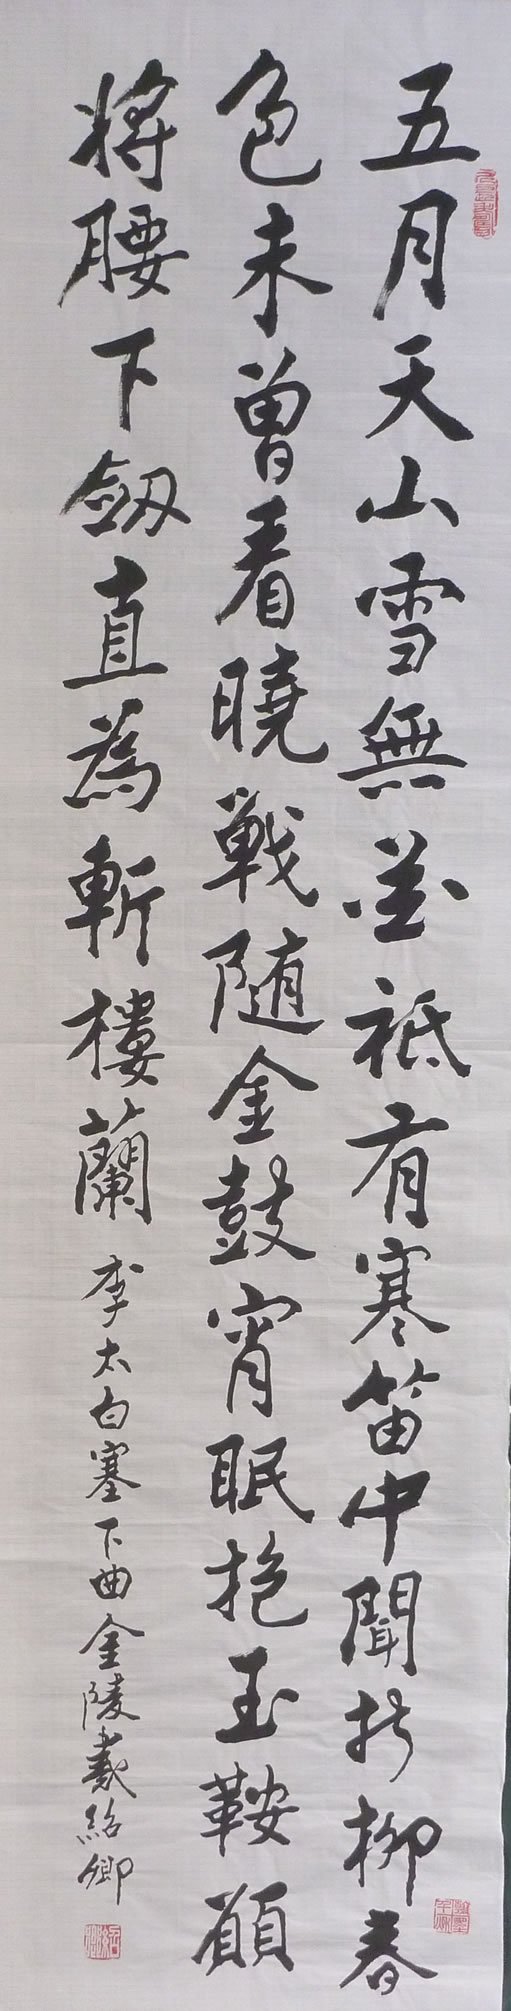 五月天山雪無花祇有寒笛中聞折柳春
色未曾看曉戰随金鼓宵眠抱玉鞍願
將腰下劒直為斬樓蘭 李太白塞下曲金陵戴紹卿